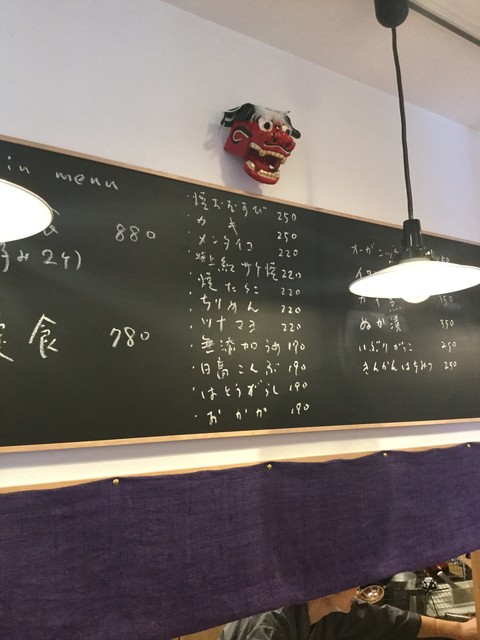 in menu
880
み 24)
食 780
・焼おむすび 250
・カキ 250
・メンタイコ 220
・特上紅サケ焼 220
・焼たらこ 220
・ちりめん 220
・ツナマヨ 220
・無添加うめ 190
・日高こんぶ 190
・はとうがらし 190
・おかか 190
オーガニック
ぬか漬 350
いぶりがっこ 250
きんかんはちみつ 250